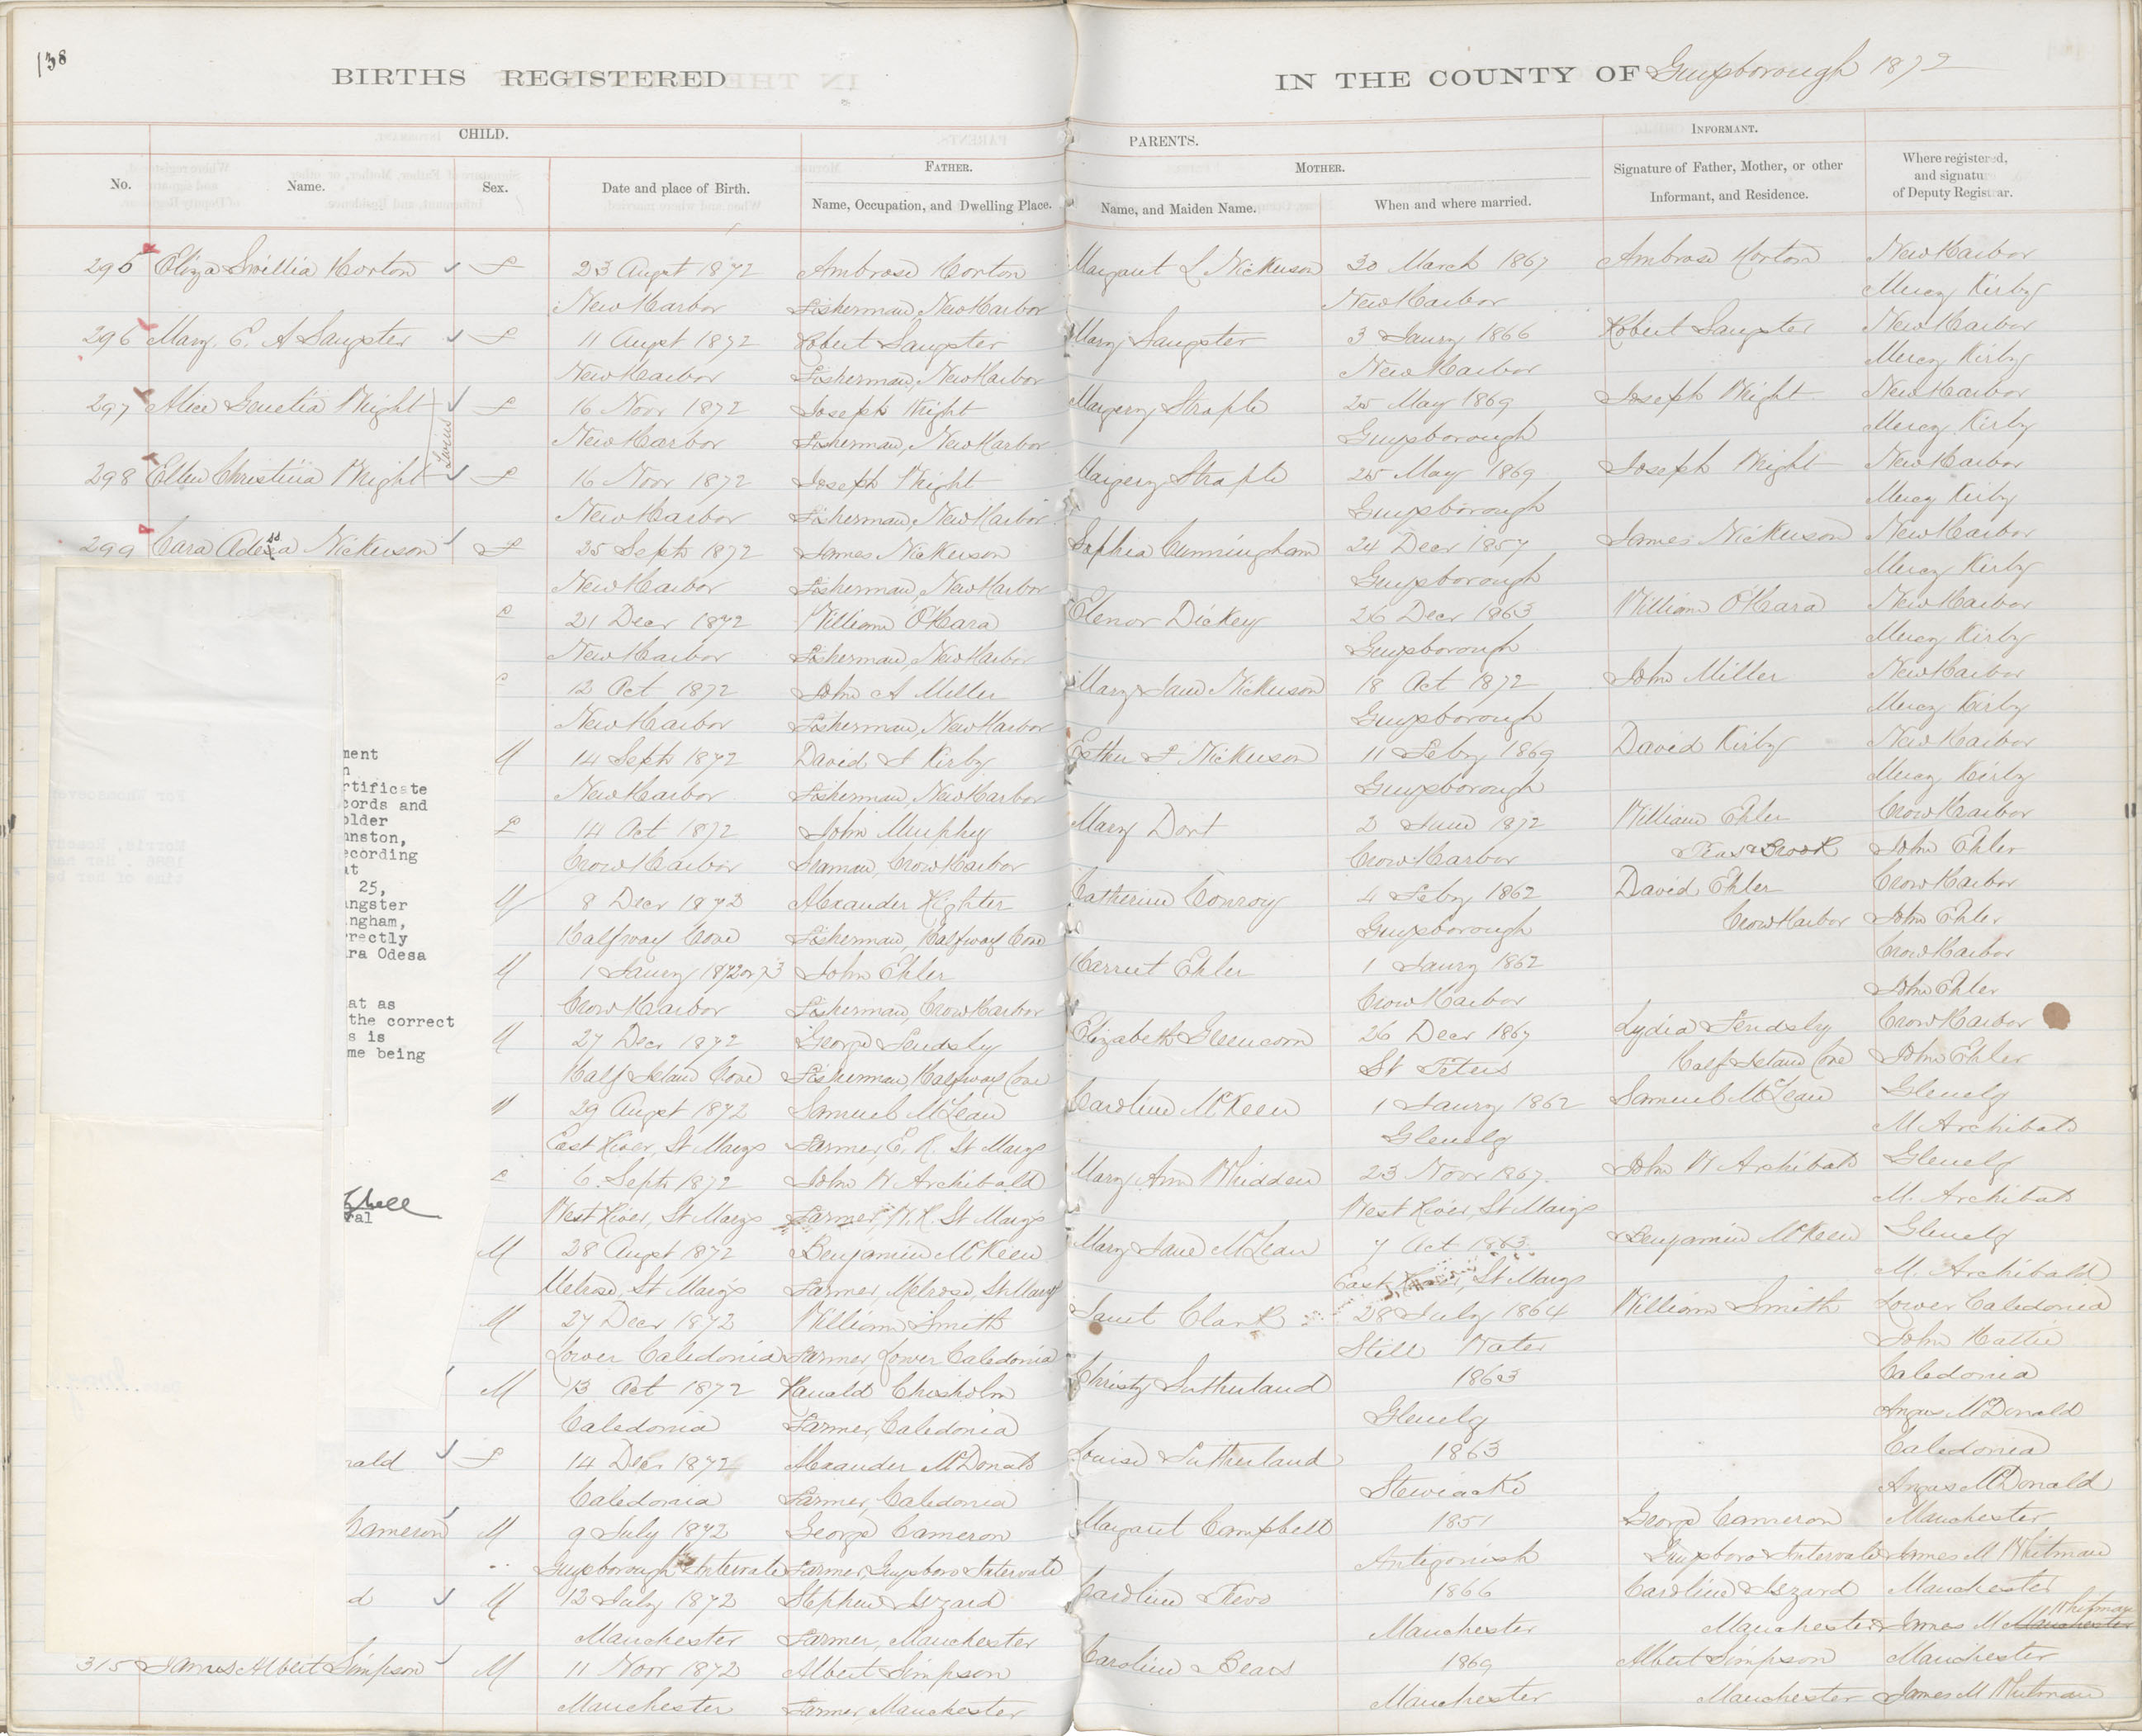 138
BIRTHS REGISTERED IN THE COUNTY OF Guysborough 1872
CHILD. PARENTS. INFORMANT.
No. Name. Sex. Date and place of Birth. FATHER. Name, Occupation, and Dwelling Place. MOTHER. Name, and Maiden Name. When and where married. Signature of Father, Mother, or other Informant, and Residence. Where registered, and signature of Deputy Registrar.
295 Eliza Horton f 23 Augst 1872 Ambrose Horton Margaret L Nickerson 30 March 1867 Ambrose Horton New Harbor
New Harbor Fisherman, New Harbor New Harbor Mercy Kirby
296 Mary E. A Sangster f 11 Augst 1872 Robert Sangster Mary Sangster 3 Jaury 1866 Robert Sangster New Harbor
New Harbor Fisherman, New Harbor New Harbor Mercy Kirby
297 Alice Genetia Wright f 16 Novr 1872 Joseph Wright Margery Straple 25 May 1869 Joseph Wright New Harbor
Twins
New Harbor Fisherman, New Harbor Guysborough Mercy Kirby
298 Ellen Christina Wright f 16 Novr 1872 Joseph Wright Margery Straple 25 May 1869 Joseph Wright New Harbor
New Harbor Fisherman, New Harbor Guysborough Mercy Kirby
299 Cara Nickerson f 25 Sept 1872 James Nickerson Sophia Cunningham 24 Decr 1857 James Nickerson New Harbor
New Harbor Fisherman, New Harbor Guysborough Mercy Kirby
21 Decr 1872 William O'Hara Elenor Dickey 26 Decr 1863 William O'Hara New Harbor
New Harbor Fisherman, New Harbor Guysborough Mercy Kirby
12 Oct 1872 John A Miller Mary Jane Nickerson 18 Oct 1872 John Miller New Harbor
New Harbor Fisherman, New Harbor Guysborough Mercy Kirby
M 14 Sept 1872 David Kirby Esther Nickerson 11 Feby 1869 David Kirby New Harbor
New Harbor Fisherman, New Harbor Guysborough Mercy Kirby
f 14 Oct 1872 John Murphy Mary Dort 2 June 1872 William Ehler Crow Harbor
Crow Harbor Seaman, Crow Harbor Crow Harbor John Ehler
M 8 Decr 1872 Alexander Righter Catherine Conroy 4 Feby 1862 David Ehler Crow Harbor
Halfway Cove Fisherman, Halfway Cove Guysborough Crow Harbor John Ehler
M 1 Jaury 1872 or 73 John Ehler Harriet Ehler 1 Jaury 1862 Crow Harbor
Crow Harbor Fisherman, Crow Harbor Crow Harbor John Ehler
M 27 Decr 1872 George Fendsly Elizabeth 26 Decr 1867 Lydia Fendsly Crow Harbor
Half Island Cove Fisherman, Halfway Cove St Peters Half Island Cove John Ehler
M 29 Augst 1872 Samuel McLean Caroline McKeen 1 Jaury 1862 Samuel McLean Glenelg
East River, St Marys Farmer, E. R. St Marys Glenelg M Archibald
6 Sept 1872 John W Archibald Mary Ann Whidden 23 Novr 1867 John W Archibald Glenelg
West River, St Marys Farmer, W. R. St Marys West River, St Marys M. Archibald
M 28 Augst 1872 Benjamin McKeen Mary Jane McLean 7 Oct 1863 Benjamin McKeen Glenelg
Melrose, St Marys Farmer, Melrose, St Marys East River, St Marys M. Archibald
M 27 Decr 1872 William Smith Janet Clark 28 July 1864 William Smith Lower Caledonia
Lower Caledonia Farmer, Lower Caledonia Still Water John Hattie
M 13 Oct 1872 Ranald Chisholm Christy Sutherland 1863 Caledonia
Caledonia Farmer, Caledonia Glenelg Angus McDonald
nald f 14 Decr 1872 Alexander McDonald Louise Sutherland 1863 Caledonia
Caledonia Farmer, Caledonia Stewiacke Angus McDonald
Cameron M 9 July 1872 George Cameron Margaret Campbell 1851 George Cameron Manchester
Guysborough Intervale Farmer, Guysboro Intervale Antigonish Guysboro Intervale James M Whitman
d M 12 July 1872 Stephen Lezard Caroline 1866 Caroline Lezard Manchester
Manchester Farmer, Manchester Manchester Manchester James M Manchester Whitman
315 James Albert Simpson M 11 Novr 1872 Albert Simpson Caroline Bears 1869 Albert Simpson Manchester
Manchester Farmer, Manchester Manchester Manchester James M Whitman
ment
n
rtificate
cords and
older
nnston,
ecording
at
25,
angster
ingham,
rrectly
ara Odesa
at as
the correct
s is
me being
ral